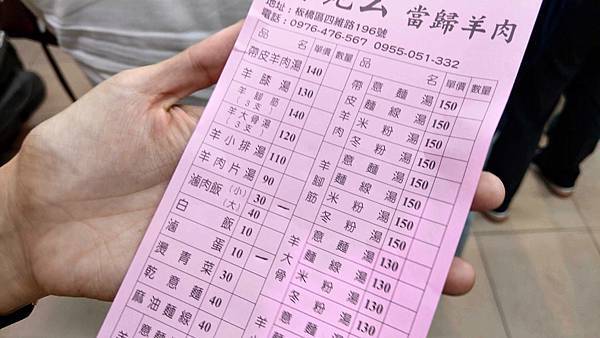 當歸羊肉
地址：板橋區四維路196號
電話：0976-476-567 0955-051-332
品名 單價 數量
帶皮羊肉湯 140
羊膝湯 130
羊腳筋(3支) 140
羊大骨湯(3支) 120
羊小排湯 110
羊肉片湯 90
滷肉飯(小) 30 一
(大) 40
白飯 10
滷蛋 10 一
燙青菜 30
乾意麵 40
麻油麵線 40
品名 單價 數量
帶皮羊肉
意麵湯 150
麵線湯 150
米粉湯 150
冬粉湯 150
羊腳筋
意麵湯 150
麵線湯 150
米粉湯 150
冬粉湯 150
羊大骨
意麵湯 130
麵線湯 130
米粉湯 130
冬粉湯 130
意麵湯